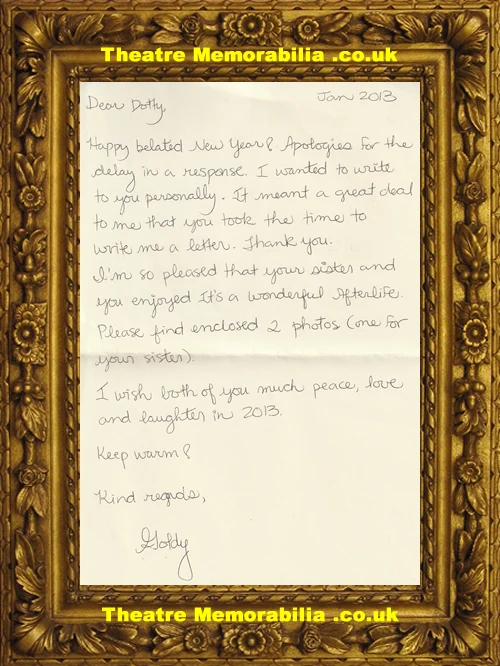 Theatre Memorabilia .co.uk
Jan 2013
Dear Dotty,
Happy belated New Year! Apologies for the
delay in a response. I wanted to write
to you personally. It meant a great deal
to me that you took the time to
write me a letter. Thank you.
I'm so pleased that your sister and
you enjoyed It's a Wonderful Afterlife.
Please find enclosed 2 photos (one for
your sister).
I wish both of you much peace, love
and laughter in 2013.
Keep warm!
Kind regards,
Goldy
Theatre Memorabilia .co.uk